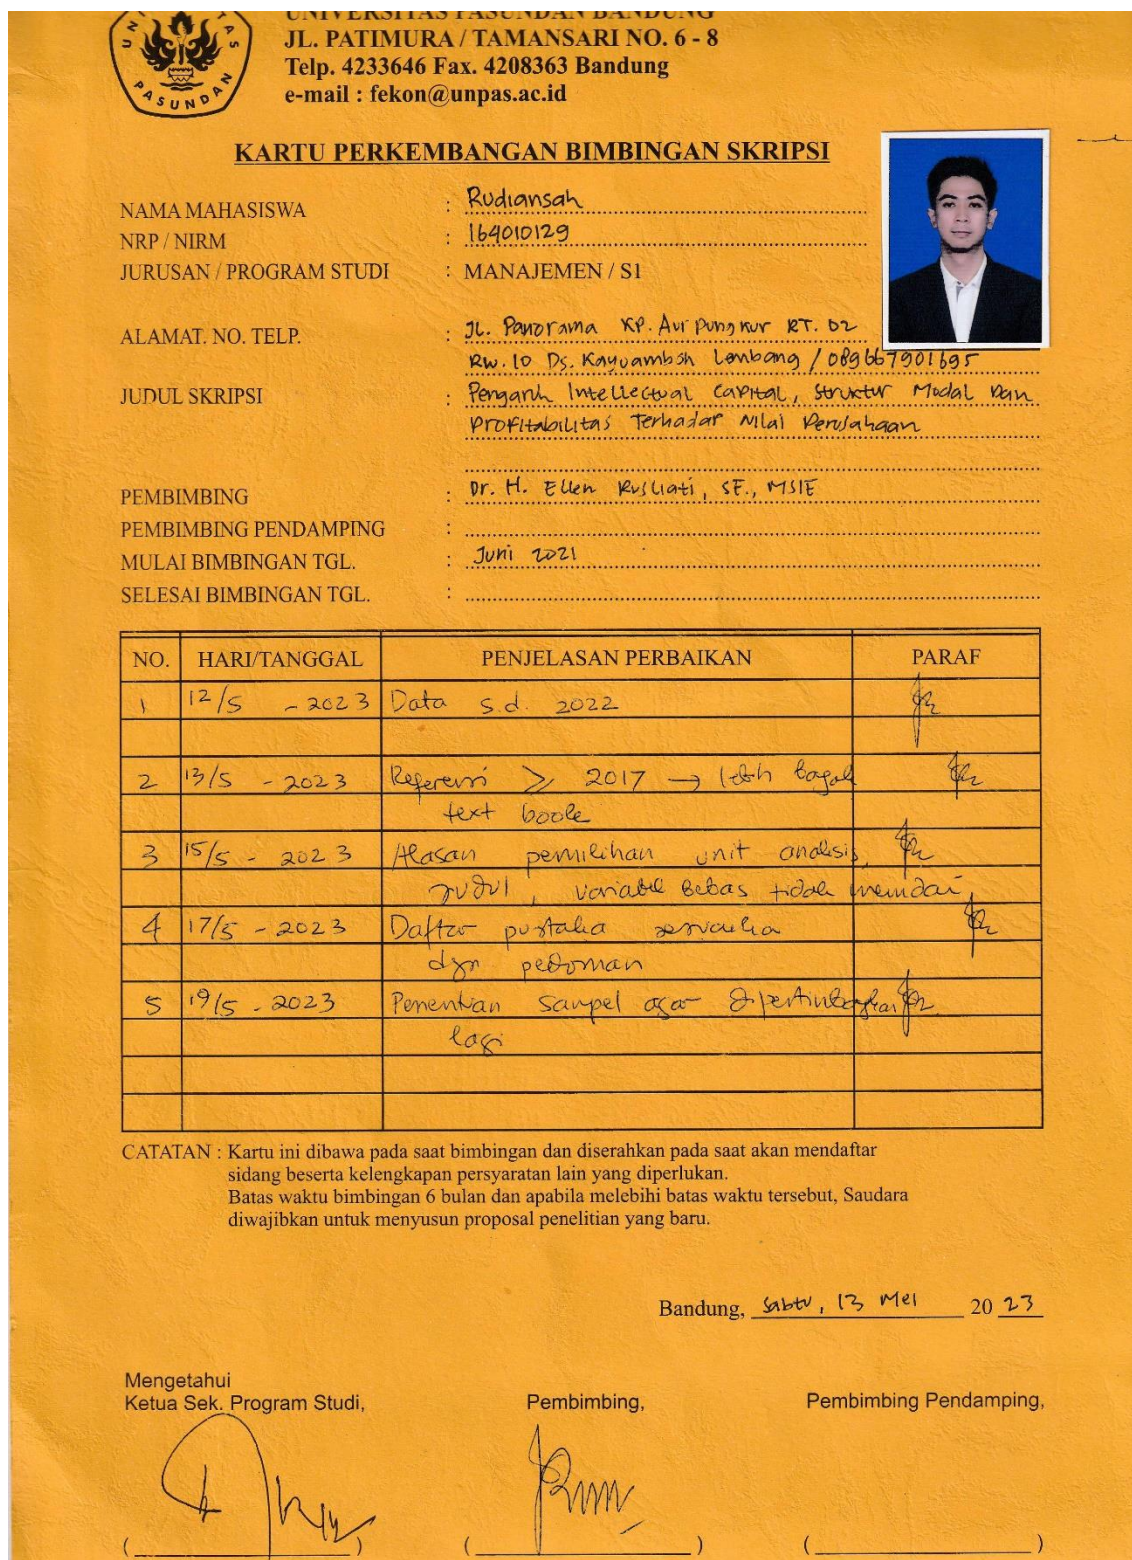 UNIVERSITAS PASUNDAN BANDUNG
JL. PATIMURA / TAMANSARI NO. 6 - 8
Telp. 4233646 Fax. 4208363 Bandung
e-mail : fekon@unpas.ac.id
PASUNDAN
KARTU PERKEMBANGAN BIMBINGAN SKRIPSI
NAMA MAHASISWA : Rudiansah
NRP / NIRM : 164010129
JURUSAN / PROGRAM STUDI : MANAJEMEN / S1
ALAMAT. NO. TELP. : JL. Panorama KP. Aur Dungkur RT. 02
RW. 10 Ds. Kayuambon Lembang / 089667901695
JUDUL SKRIPSI : Pengaruh Intellectual Capital, Struktur Modal Dan
Profitabilitas Terhadap Nilai Perusahaan
PEMBIMBING : Dr. H. Ellen Rusliati, SE., MSIE
PEMBIMBING PENDAMPING :
MULAI BIMBINGAN TGL. : Juni 2021
SELESAI BIMBINGAN TGL. :
NO. HARI/TANGGAL PENJELASAN PERBAIKAN PARAF
1 12/5 - 2023 Data s.d. 2022
2 13/5 - 2023 Referensi ≥ 2017 → lebih
text book
3 15/5 - 2023 Alasan pemilihan unit analisis,
judul, variabel bebas tidak memadai,
4 17/5 - 2023 Daftar pustaka sesuaika
dgn pedoman
5 19/5 - 2023 Penentuan sampel agar dipertimbangkan
lagi
CATATAN : Kartu ini dibawa pada saat bimbingan dan diserahkan pada saat akan mendaftar
sidang beserta kelengkapan persyaratan lain yang diperlukan.
Batas waktu bimbingan 6 bulan dan apabila melebihi batas waktu tersebut, Saudara
diwajibkan untuk menyusun proposal penelitian yang baru.
Bandung, Sabtu, 13 Mei 20 23
Mengetahui
Ketua Sek. Program Studi, Pembimbing, Pembimbing Pendamping,
( ) ( ) ( )